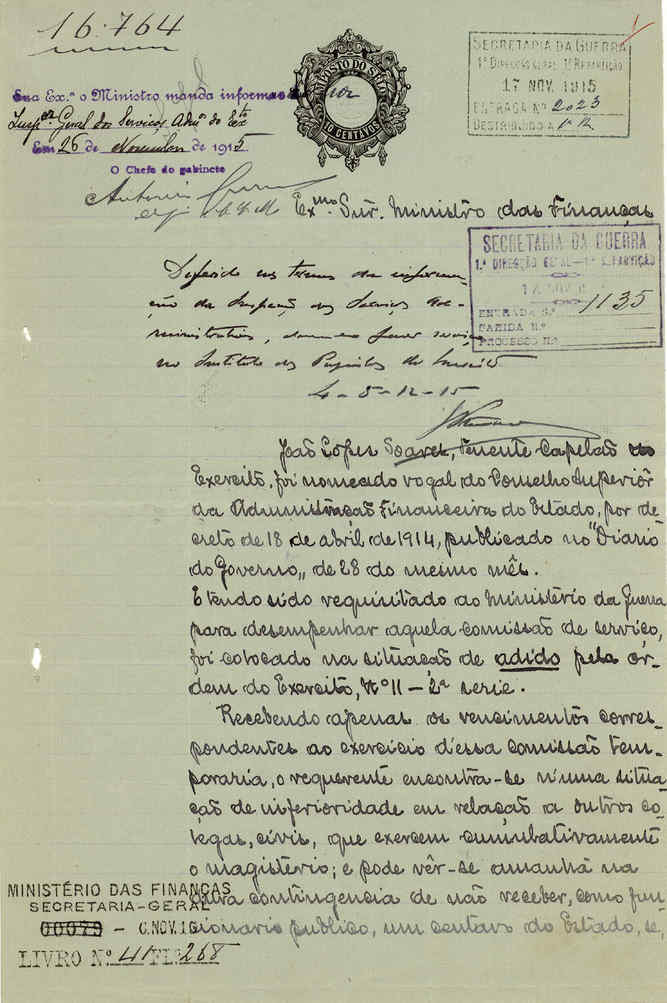 16.764
SECRETARIA DA GUERRA
1ª DIRECÇÃO GERAL 1ª REPARTIÇÃO
17 NOV. 1915
ENTRADA Nº 2023
DESTRIBUIDO A 1ª R
IMPOSTO DO SELO
10 CENTAVOS
Sua Ex.ª o Ministro manda informar
Insp.ᵒʳ Geral dos Serviços Adm.ᵒˢ do Ex.ᵗᵒ
Em 26 de Novembro de 1915
O Chefe do gabinete
Antonio
Exᵐº Snr. Ministro das Finanças
SECRETARIA DA GUERRA
1.ª DIRECÇÃO GERAL — 1.ª REPARTIÇÃO
ENTRADA N.º 1135
SAHIDA N.º
PROCESSO N.º
Deferido nos termos da informa-
ção da Inspecção dos Serviços Ad-
ministrativos, devendo fazer serviço
no Instituto dos Pupilos do Exercito
4-5-12-15
João Lopes Soares, Tenente Capelão do
Exercito, foi nomeado vogal do Conselho Superiôr
da Administração Financeira do Estado, por de-
creto de 18 de abril de 1914, publicado no "Diario
do Governo„ de 28 do mesmo mês.
E tendo sido requisitado ao Ministério da Guerra
para desempenhar aquela comissão de serviço,
foi colocado na situação de adido pela ór-
dem do Exercito, Nº 11 – 2ª serie.
Recebendo apenas os vencimentos corres-
pondentes ao exercicio dessa comissão tem-
poraria, o requerente encontra-se n'uma situa-
ção de inferioridade em relação a outros co-
legas, civis, que exercem cumulativamente
o magistério; e pode vêr-se amanhã na
dura contingencia de não receber, como fun-
cionario publico, um centavo do Estado, se,
MINISTÉRIO DAS FINANÇAS
SECRETARIA-GERAL
00079 - 6.NOV.15
LIVRO Nº 41 FLº 268